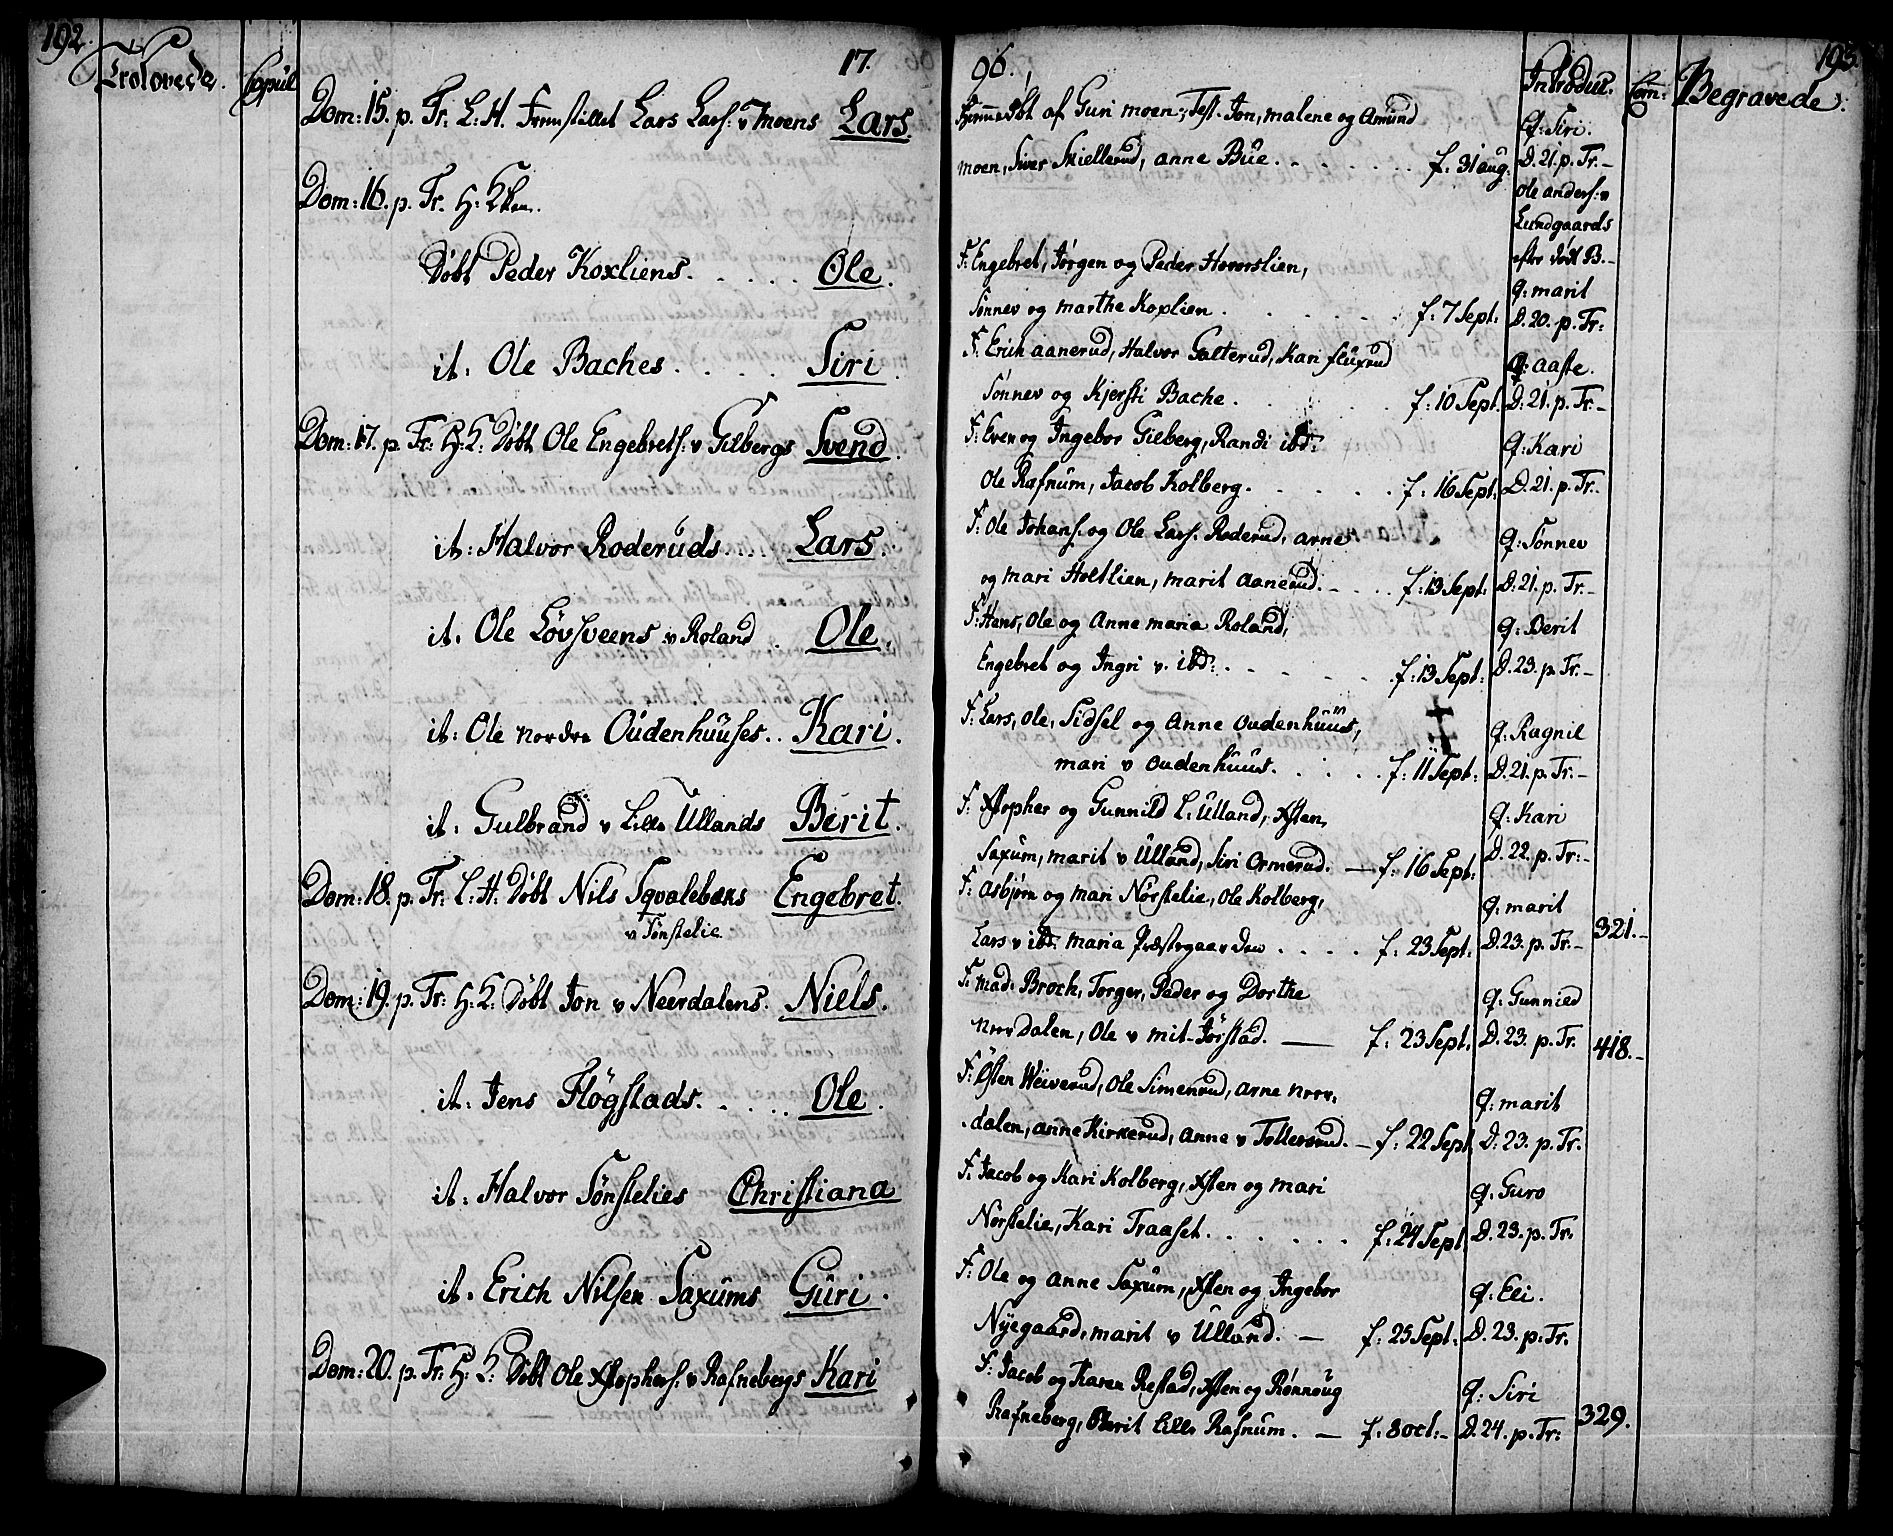 192.
Trolovede.
Copul
17.
Dom: 15. p. Tr. L. H. Fremstillet Lars Lars: v Moens Lars.
Dom: 16. p. Tr. H: K.
Døbt Peder Koxliens. . . . . . Ole.
it: Ole Baches. . . . . Siri.
Dom: 17. p. Tr: H: K: Døbt Ole Engebrets: v Gilbergs Svend.
it: Halvor Roderuds. . . . Lars.
it. Ole Løvsveens v Roland . Ole.
it: Ole nordre Oudenhuuses. . Kari.
it: Gulbrand v Lille Ullands Berit.
Dom: 18. p. Tr: L: H: Døbt Nils Sqvalebæks Engebret.
v Tønstelie
Dom: 19. p. Tr: H: K: Døbt Jon v Neerdalens. Niels.
it. Jens Fløgstads. . . . . . Ole.
it. Halvor Tønstelies Christiana
it. Erich Nilsen Saxums Guri.
Dom: 20. p. Tr: H: K: Døbt Ole Xstophers: v Rafnebergs Kari
96.
193.
Introduc.
Com:
Begravede.
Hjemmedøbt af Guri moen; Test. Jon, malene og Amund
moen, Siver Skiellerud, anne Bue. . . . . . . f. 31 aug.
q: Siri.
D. 21. p. Tr.-
Ole anders: v
Lundgaards
efter død B.-
F: Engebret, Jørgen og Peder Hovorslien,
Sønnev og marthe Koxlien . . . . . . . f: 7 Sept:
q: marit
D. 20. p. Tr:
F: Erich aanerud, Halvor Galterud, Kari fluxrud
Sønnev og Kjersti Bache . . . . . f: 10 Sept.
q: aaste.
D: 21. p. Tr.-
F: Even og Ingebor Gieberg, Randi ibd:
Ole Rafnum, Jacob Kolberg. . . . . . f: 16 Sept:
q: Kari
D. 21. p. Tr.-
F: Ole Johans. og Ole Lars. Roderud, arne
og mari Holtlien, marit aanerud. - . . . f: 13 Sept:
q: Sønnev
D: 21. p. Tr.-
F: Hans, Ole og Anne maria Roland,
Engebret og Ingri v. ibd: . . . . . . f: 13 Sept:
q: Berit
D. 23. p. Tr.-
F: Lars, Ole, Sidsel og Anne Oudenhuus,
mari v Oudenhuus. . . . . . f: 11 Sept:
q: Ragnil
D. 21. p. Tr.-
F: Xstopher og Gunnild L: Ulland, Xsten,
Saxum, marit v Ulland, Siri Ormerud. — f: 16 Sept:
q: Kari
D. 22. p. Tr:-
F: Asbjørn og mari Nørstelie, Ole Kolberg,
Lars v ibd: maria Præstegaarden . . . . f: 23 Sept:
q: marit
D. 23. p. Tr.-
321.-
F: mad. Broch, Torger, Peder og Dorthe
neerdalen, Ole v mit-Jørstad. — f: 23 Sept:
q: Gunnied
D. 23. p. Tr.
418.-
F: Østen Weiverud, Ole Simenrud, Arne neer.
. dalen, anne Kirkerud, anne v Tollersrud. - f: 22 Sept:
q: marit
D: 23. p. Tr.
F: Jacob og Kari Kolberg, Xsten og mari
Nørstelie, Kari Traaset. . . . . . . f: 24 Sept:
q: Guro
D. 23. p. Tr.
F: Ole og anne Saxum, Xsten og Ingebor
Nyegaard, marit v Ulland. — f: 25 Sept:
q: Eli.
D. 23. p. Tr.
F: Jacob og Karen Restad, Xsten og Rønnoug
Rafneberg, Berit Lille Rafnum. — f: 8 oct:-
q: Siri
D. 24. p. Tr:
329.